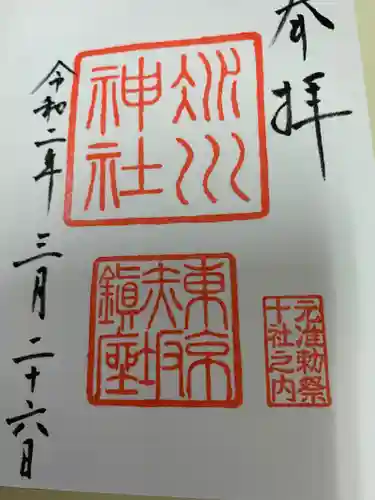 奉拝
氷川
神社
東京
赤坂
鎮座
元准勅祭
十社之内
令和二年三月二十六日